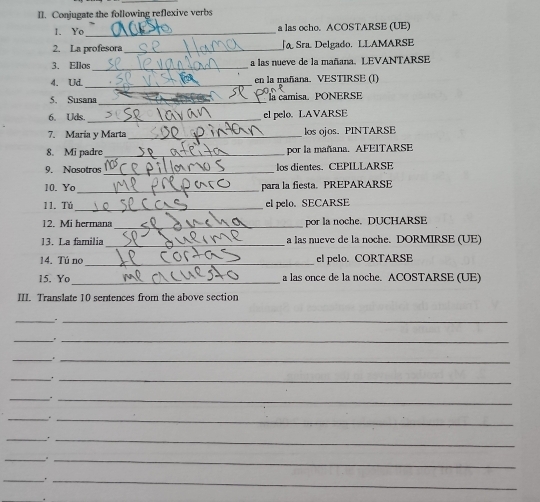 II. Conjugate the following reflexive verbs
1. Yo acuesto a las ocho. ACOSTARSE (UE)
2. La profesora se llama la Sra. Delgado. LLAMARSE
3. Ellos se levantan a las nueve de la mañana. LEVANTARSE
4. Ud. se vista en la mañana. VESTIRSE (I)
5. Susana se pone la camisa. PONERSE
6. Uds. se lavan el pelo. LAVARSE
7. María y Marta se pintan los ojos. PINTARSE
8. Mi padre se afeita por la mañana. AFEITARSE
9. Nosotros nos cepillamos los dientes. CEPILLARSE
10. Yo me preparo para la fiesta. PREPARARSE
11. Tú te seccas el pelo. SECARSE
12. Mi hermana se ducha por la noche. DUCHARSE
13. La familia se duerme a las nueve de la noche. DORMIRSE (UE)
14. Tú no te cortas el pelo. CORTARSE
15. Yo me acuesto a las once de la noche. ACOSTARSE (UE)
III. Translate 10 sentences from the above section